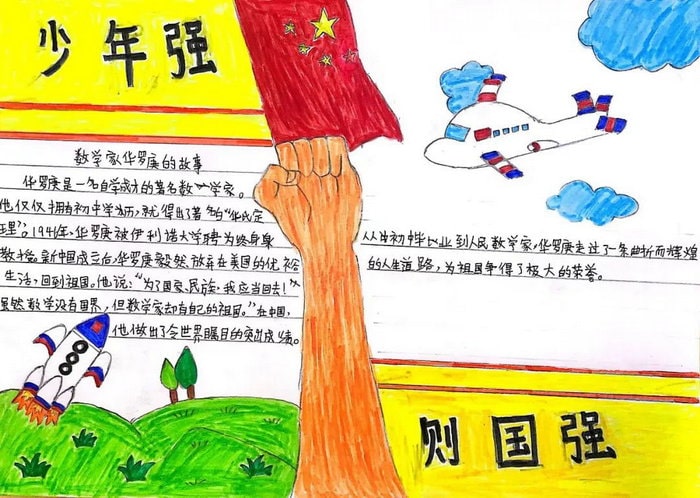 少年强
数学家华罗庚的故事
华罗庚是一名自学成才的著名数学家。
他仅仅拥有初中学历，就得出了著名的"华氏定
理"。1946年，华罗庚被伊利诺大学聘为终身教
授。新中国成立后，华罗庚毅然放弃在美国的优裕
生活，回到祖国。他说："为了国家、民族，我应当回去！"
虽然数学没有国界，但数学家却有自己的祖国。"在中国，
他做出了令世界瞩目的突出成绩。
从初中毕业到人民数学家，华罗庚走过了一条曲折而辉煌
的人生道路，为祖国争得了极大的荣誉。
则国强